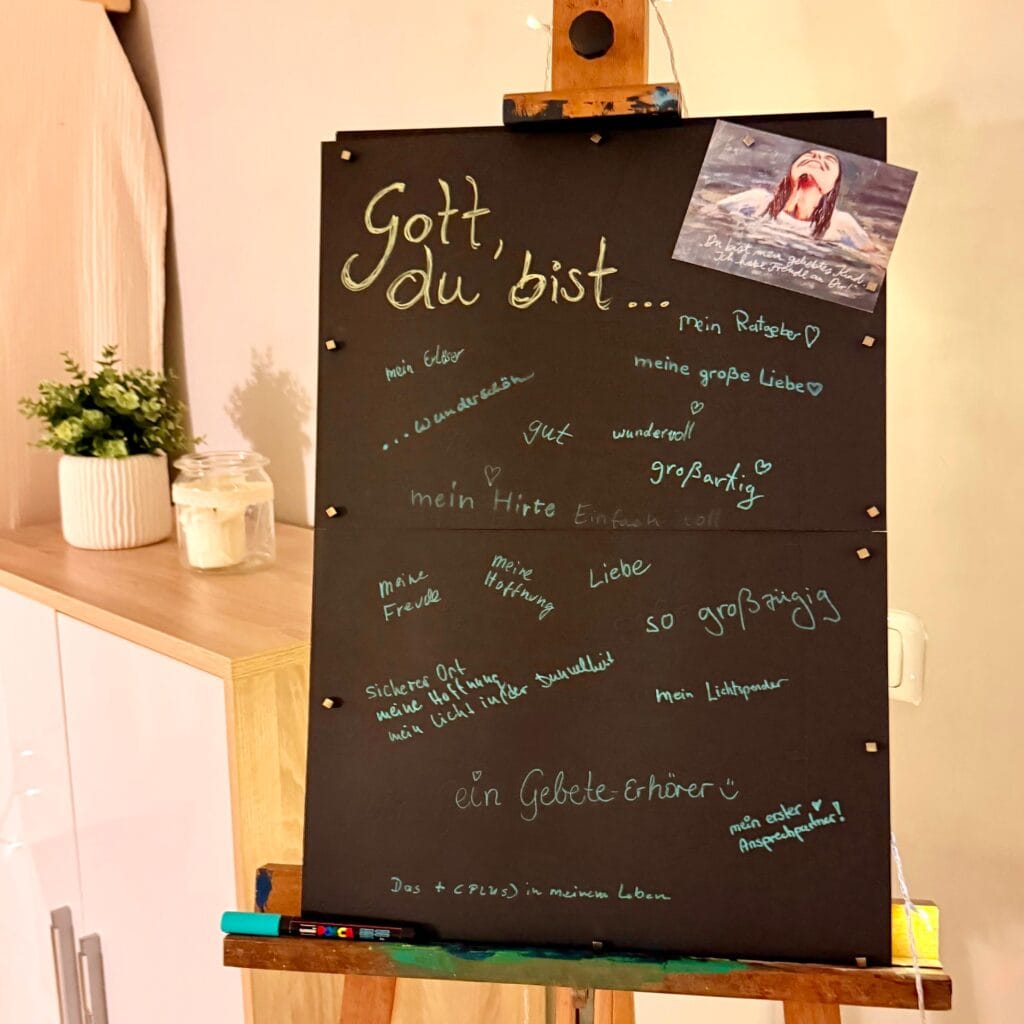 Gott,
du bist...
„Du bist mein geliebtes Kind.
Ich habe Freude an Dir!"
mein Ratgeber
mein Erlöser
meine große Liebe
...wunderschön
gut
wundervoll
großartig
mein Hirte
Einfach toll
meine
Freude
meine
Hoffnung
Liebe
so großzügig
sicherer Ort
meine Hoffnung,
mein Licht in der Dunkelheit
mein Lichtspender
ein Gebete-Erhörer
mein erster
Ansprechpartner!
Das + (PLUS) in meinem Leben
POSCA